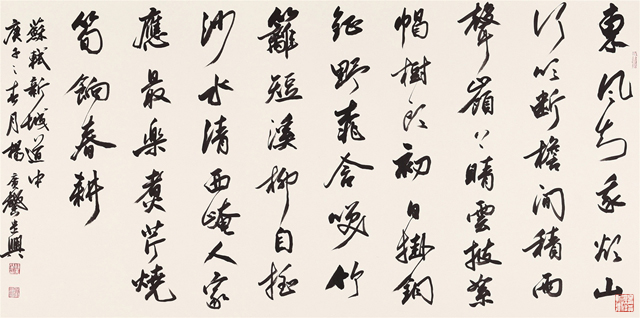 東風知我欲山
行吹斷檐間積雨
聲嶺上晴雲披絮
帽樹頭初日掛銅
鉦野桃含笑竹
籬短溪柳自摇
沙水清西崦人家
應最樂煑芹燒
筍餉春耕
蘇軾新城道中
庚子春月楊